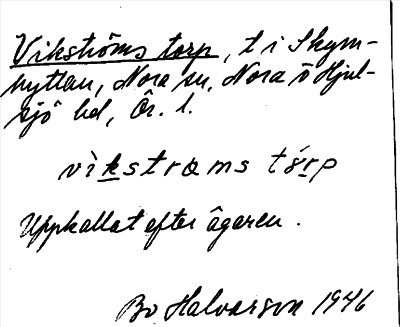 Vikströms torp, t i Skym-
hyttan, Nora sn, Nora o Hjul-
sjö hd, Ör. l.
vìkstrøms tórp
Uppkallat efter ägaren.
Bo Halvarson 1946